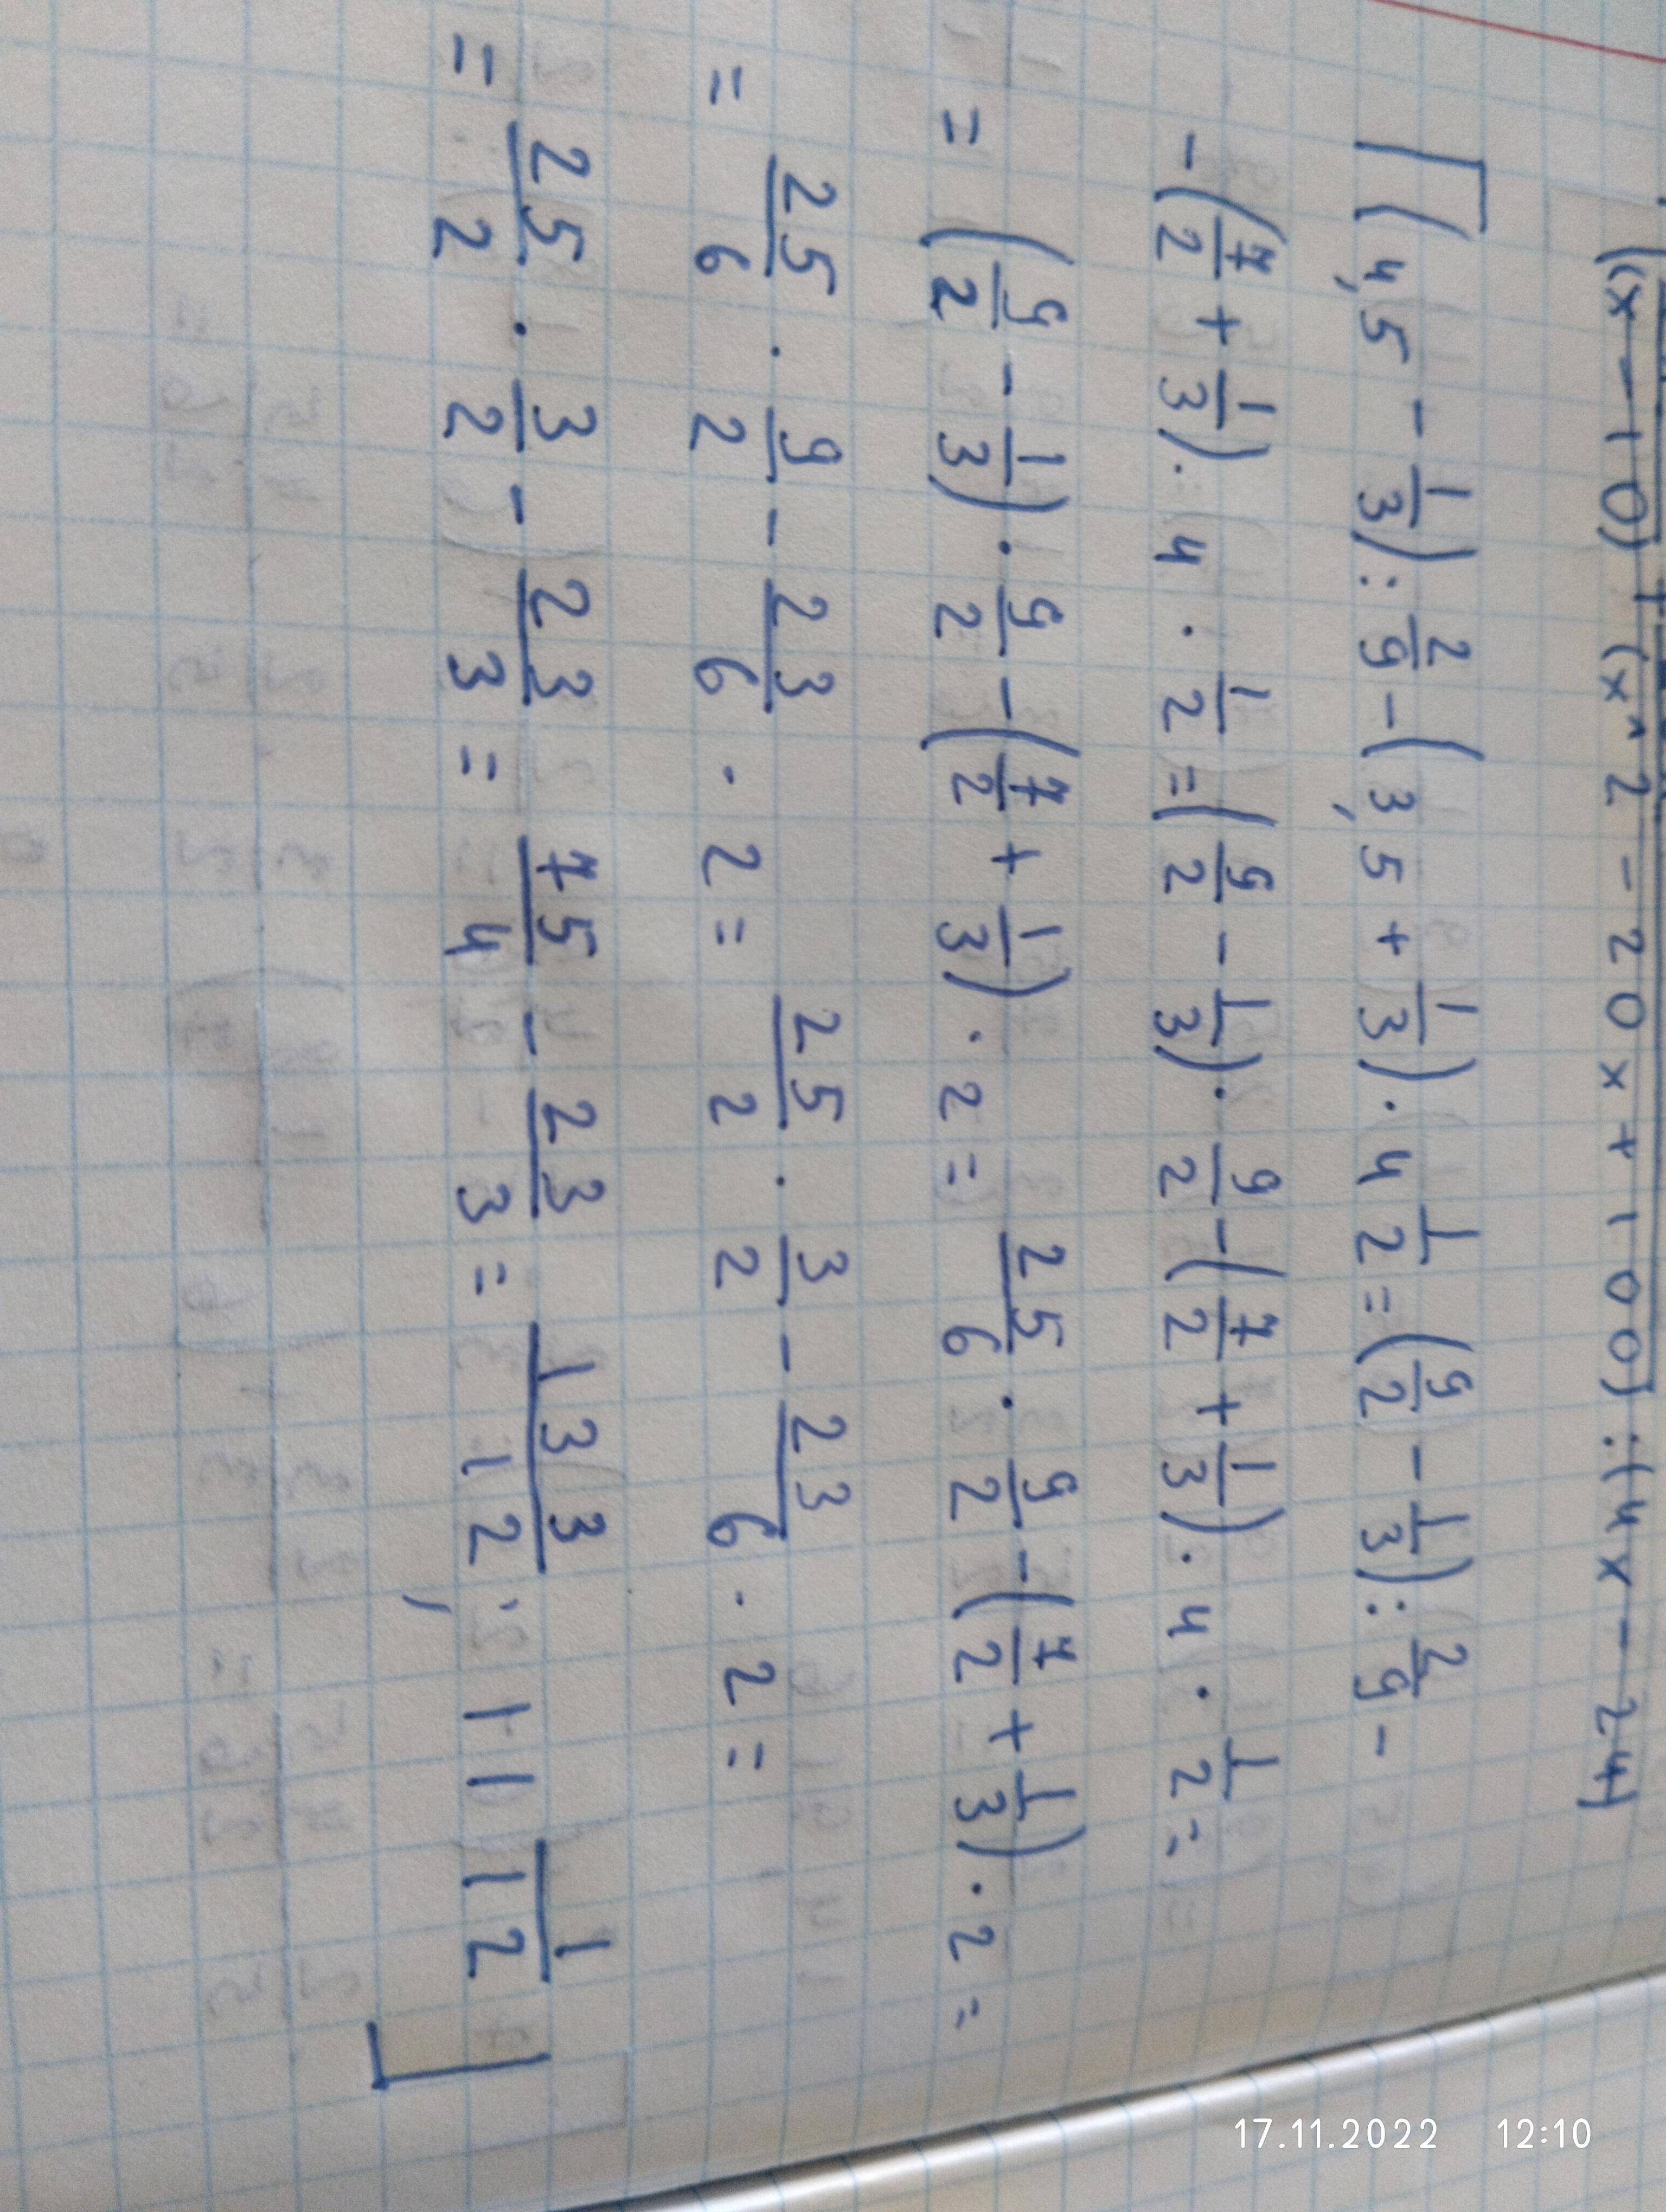 ((x-10)+(x^2-20x+100):(4x-24)
[(4,5 - 1/3) : 2/9 - (3,5 + 1/3) · 4 1/2 = (9/2 - 1/3) : 2/9 -
- (7/2 + 1/3) · 4 · 1/2 = (9/2 - 1/3) · 9/2 - (7/2 + 1/3) · 4 · 1/2 =
= (9/2 - 1/3) · 9/2 - (7/2 + 1/3) · 2 = 25/6 · 9/2 - (7/2 + 1/3) · 2 =
= 25/6 · 9/2 - 23/6 · 2 = 25/2 · 3/2 - 23/6 · 2 =
= 25/2 · 3/2 - 23/3 = 75/4 - 23/3 = 133/12, 11 1/12]
17.11.2022 12:10